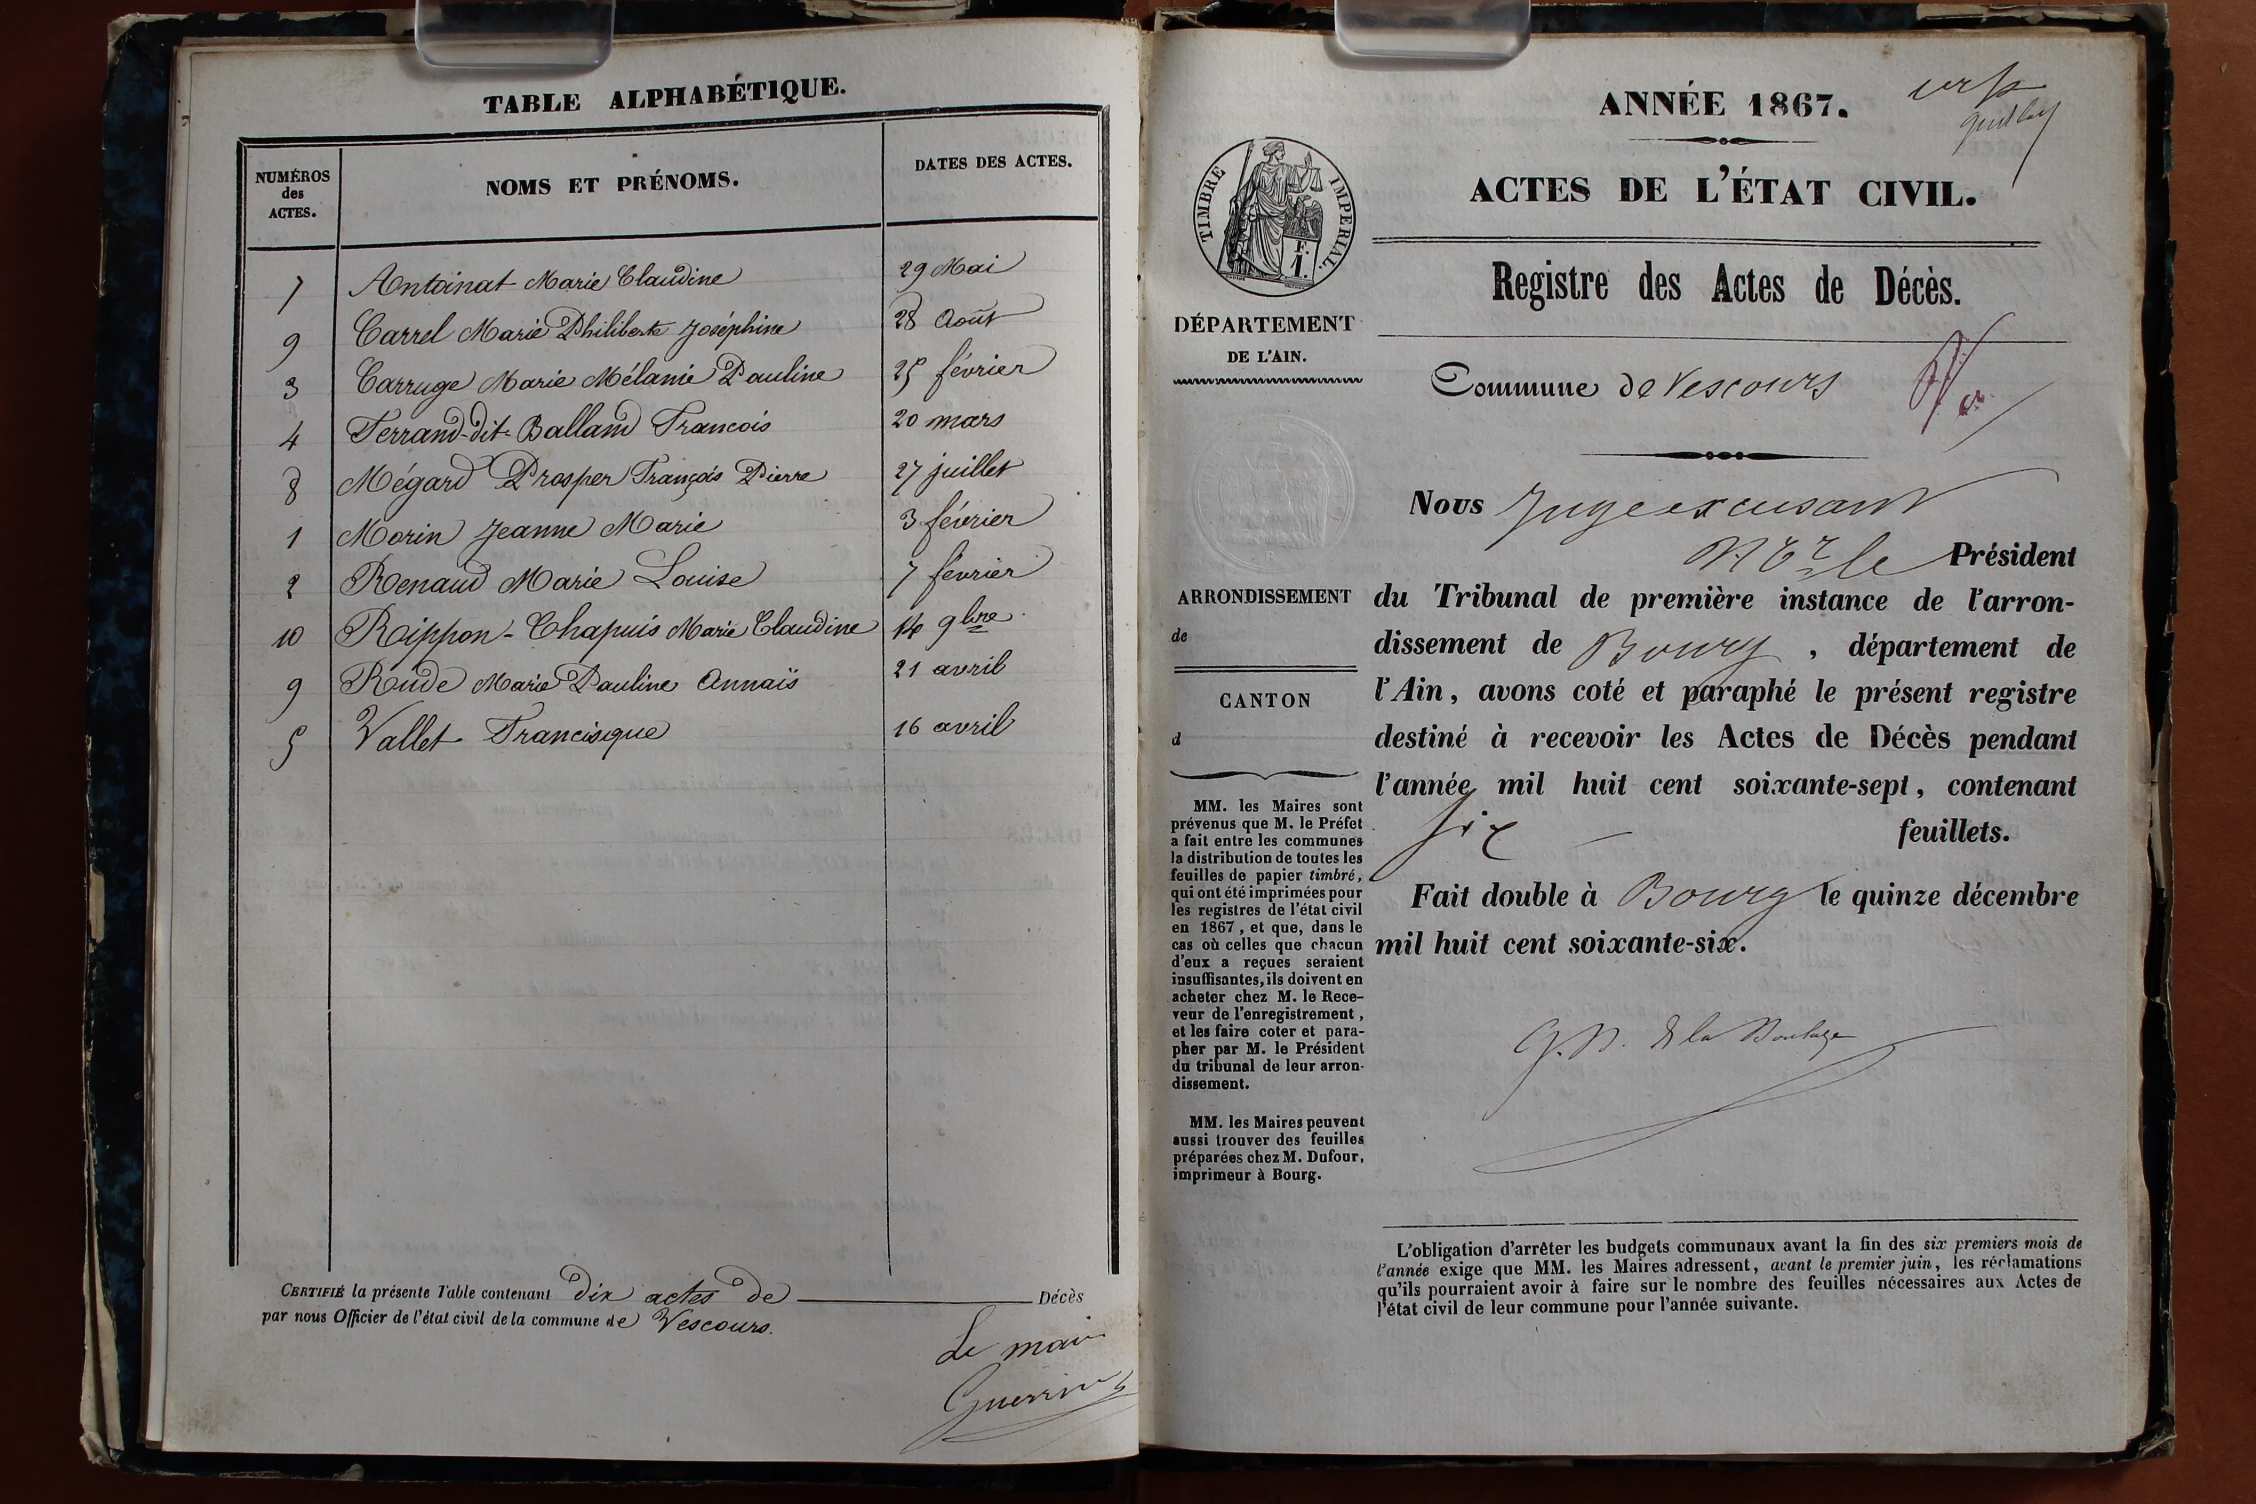 TABLE ALPHABÉTIQUE.
NUMÉROS
des
ACTES.
NOMS ET PRÉNOMS.
DATES DES ACTES.
7 Antoinat Marie Claudine 29 Mai
9 Carrel Marie Philiberte Joséphine 28 Août
3 Carruge Marie Mélanie Pauline 25 février
4 Ferrand-dit-Balland Francois 20 mars
8 Mégard Prosper François Pierre 27 juillet
1 Morin Jeanne Marie 3 février
2 Renaud Marie Louise 7 février
10 Rippon-Chapuis Marie Claudine 14 9bre
9 Rude Marie Pauline Annaïs 21 avril
5 Vallet Francisque 16 avril
CERTIFIÉ la présente Table contenant dix actes de Décès
par nous Officier de l'état civil de la commune de Vescours.
Le maire
Guerrin
ANNÉE 1867.
ACTES DE L'ÉTAT CIVIL.
TIMBRE IMPERIAL.
F.
1.
Registre des Actes de Décès.
DÉPARTEMENT
DE L'AIN.
Commune de Vescours
Nous Juge excusant
Mr le Président
ARRONDISSEMENT
de
CANTON
d
du Tribunal de première instance de l'arron-
dissement de Bourg, département de
l'Ain, avons coté et paraphé le présent registre
destiné à recevoir les Actes de Décès pendant
l'année mil huit cent soixante-sept, contenant
six feuillets.
Fait double à Bourg le quinze décembre
mil huit cent soixante-six.
MM. les Maires sont
prévenus que M. le Préfet
a fait entre les communes
la distribution de toutes les
feuilles de papier timbré,
qui ont été imprimées pour
les registres de l'état civil
en 1867, et que, dans le
cas où celles que chacun
d'eux a reçues seraient
insuffisantes, ils doivent en
acheter chez M. le Rece-
veur de l'enregistrement,
et les faire coter et para-
pher par M. le Président
du tribunal de leur arron-
dissement.
MM. les Maires peuvent
aussi trouver des feuilles
préparées chez M. Dufour,
imprimeur à Bourg.
L'obligation d'arrêter les budgets communaux avant la fin des six premiers mois de
l'année exige que MM. les Maires adressent, avant le premier juin, les réclamations
qu'ils pourraient avoir à faire sur le nombre des feuilles nécessaires aux Actes de
l'état civil de leur commune pour l'année suivante.